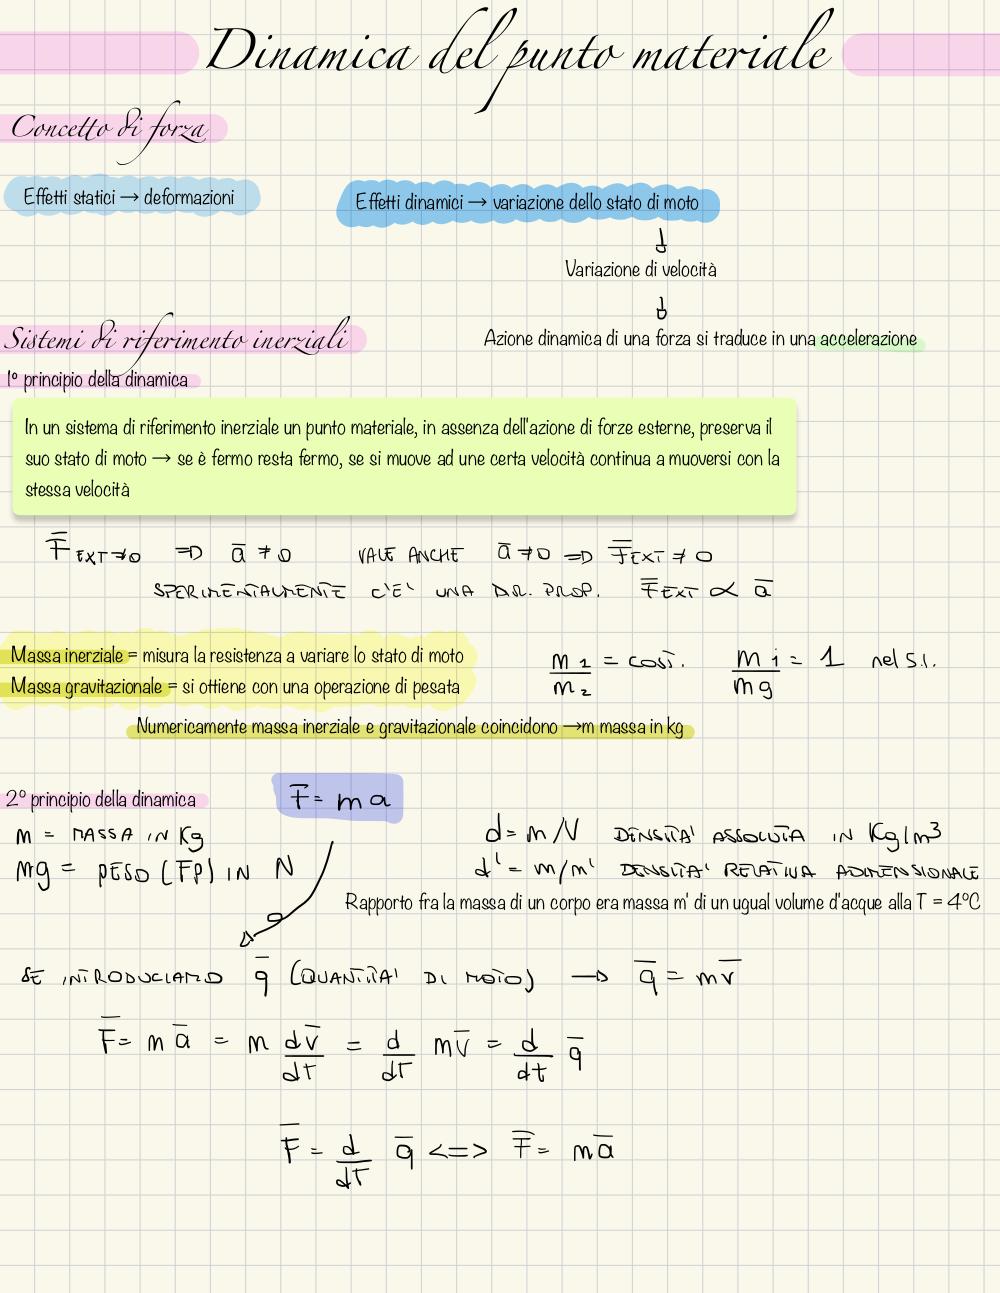 Dinamica del punto materiale
Concetto di forza
Effetti statici → deformazioni
Effetti dinamici → variazione dello stato di moto
Variazione di velocità
Azione dinamica di una forza si traduce in una accelerazione
Sistemi di riferimento inerziali
1° principio della dinamica
In un sistema di riferimento inerziale un punto materiale, in assenza dell'azione di forze esterne, preserva il
suo stato di moto → se è fermo resta fermo, se si muove ad una certa velocità continua a muoversi con la
stessa velocità
F̅ EXT ≠ 0 => a̅ ≠ 0 VALE ANCHE a̅ ≠ 0 => F̅EXT ≠ 0
SPERIMENTALMENTE C'E' UNA DIR. PROP. F̅EXT ∝ a̅
Massa inerziale = misura la resistenza a variare lo stato di moto
Massa gravitazionale = si ottiene con una operazione di pesata
m1/m2 = cost. mi/mg = 1 nel S.I.
Numericamente massa inerziale e gravitazionale coincidono →m massa in kg
2° principio della dinamica
F̅ = ma
m = MASSA IN Kg
mg = PESO (FP) IN N
d = m/V DENSITA' ASSOLUTA IN Kg/m³
d' = m/m' DENSITA' RELATIVA ADIMENSIONALE
Rapporto fra la massa di un corpo era massa m' di un ugual volume d'acque alla T = 4°C
SE INTRODUCIAMO q̅ (QUANTITA' DI MOTO) → q̅ = mv̅
F̅ = m a̅ = m dv̅/dt = d/dt mv̅ = d/dt q̅
F̅ = d/dt q̅ <=> F̅ = ma̅